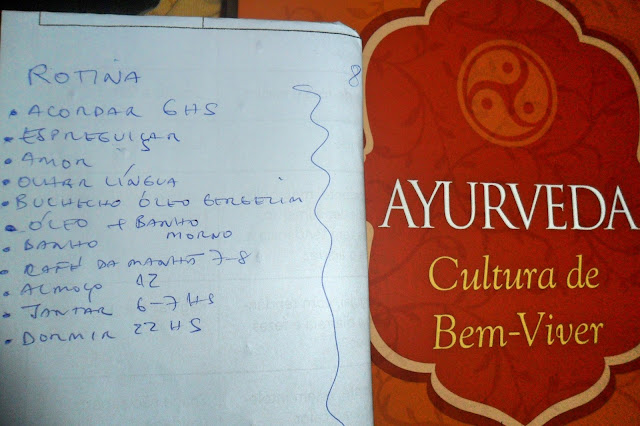 ROTINA
8
• ACORDAR 6HS
• ESPREGUIÇAR
• AMOR
• OLHAR LÍNGUA
• BUCHECHO ÓLEO GERGELIM
• ÓLEO + BANHO
MORNO
• BANHO
• CAFÉ DA MANHÃ 7-8
• ALMOÇO 12
• JANTAR 6-7 HS
• DORMIR 22 HS
AYURVEDA
Cultura de
Bem-Viver